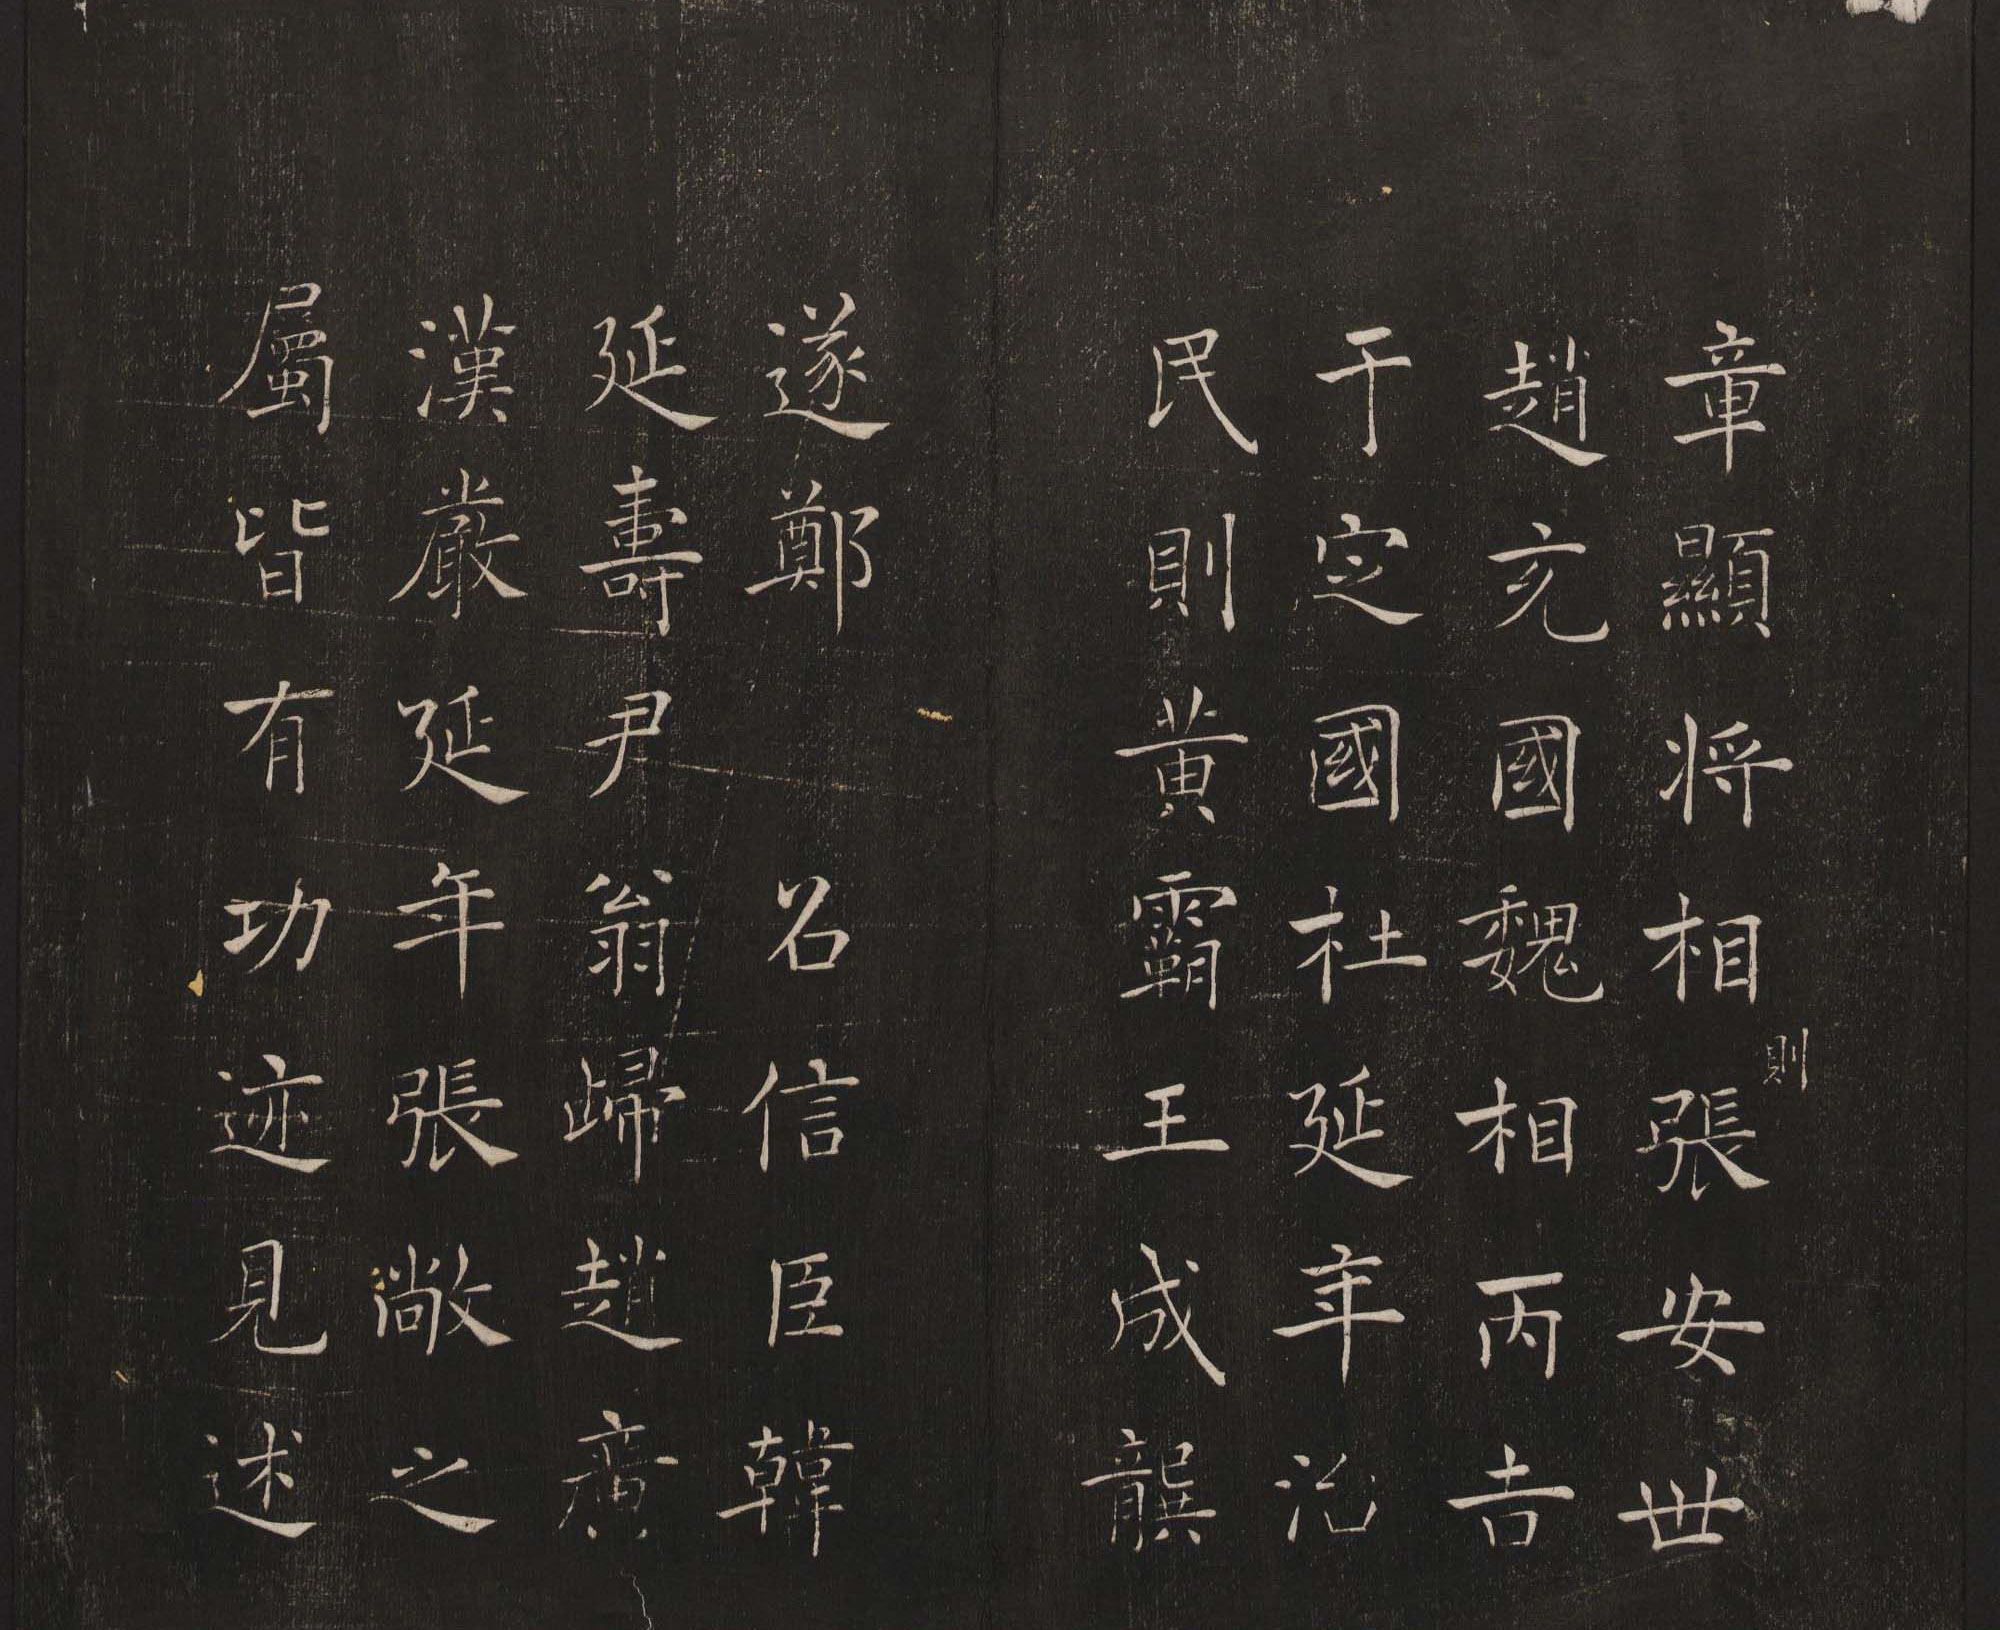 章顯將相張安世
則
趙充國魏相丙吉
于定國杜延年治
民則黃霸王成龔
遂鄭 召信臣韓
延壽尹翁歸趙廣
漢嚴延年張敞之
屬皆有功迹見述